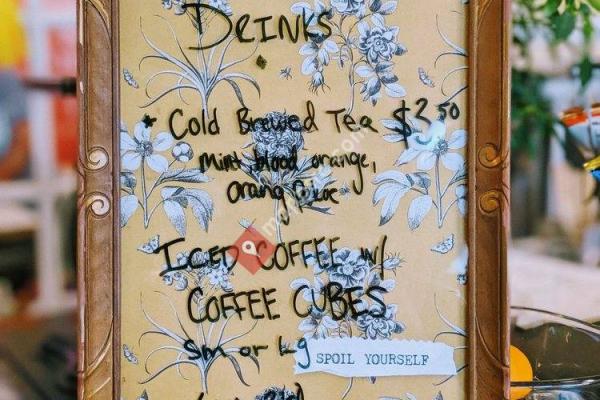 DRINKS
* Cold Brewed Tea $3.50
Mint, blood orange,
Orang
ICED COFFEE w/
COFFEE CUBES
sm or Lg
SPOIL YOURSELF